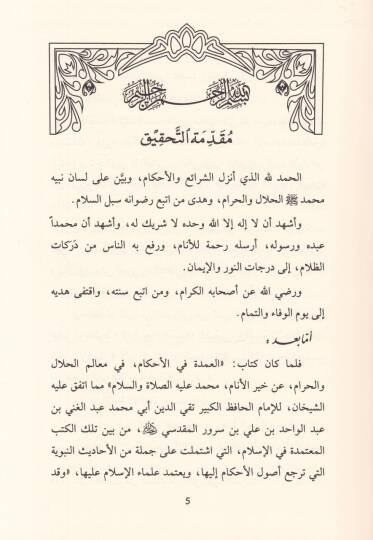 بسم الله الرحمن الرحيم
مُقَدِّمَة التَّحْقِيْق
الحمد لله الذي أنزل الشرائع والأحكام، وبيَّن على لسان نبيه
محمد ﷺ الحلال والحرام، وهدى من اتبع رضوانه سبل السلام.
وأشهد أن لا إله إلا الله وحده لا شريك له، وأشهد أن محمداً
عبده ورسوله، أرسله رحمة للأنام، ورفع به الناس من دَرَكات
الظلام، إلى درجات النور والإيمان.
ورضي الله عن أصحابه الكرام، ومن اتبع سنته، واقتفى هديه
إلى يوم الوفاء والتمام.
أمّا بعد:
فلما كان كتاب: «العمدة في الأحكام، في معالم الحلال
والحرام، عن خير الأنام، محمد عليه الصلاة والسلام» مما اتفق عليه
الشيخان، للإمام الحافظ الكبير تقي الدين أبي محمد عبد الغني بن
عبد الواحد بن علي بن سرور المقدسي، من بين تلك الكتب
المعتمدة في الإسلام، التي اشتملت على جملة من الأحاديث النبوية
التي ترجع أصول الأحكام إليها، ويعتمد علماء الإسلام عليها، «وقد
5